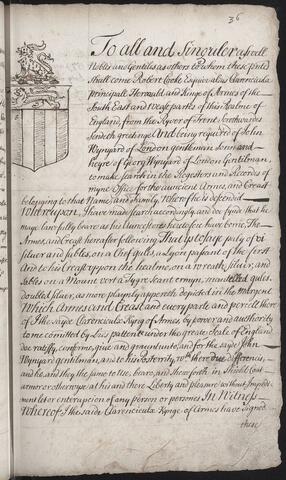 36
To all and Singuler as well
Nobles and Gentills as others to whom these pñts
shall come Robert Cooke Esquier alias Clarenciulx
principall Herauld and Kinge of Armes of the
South East and West parts of this Realme of
England, from the River of Trent Southwards
Sendeth greetinge And being required of John
Wynyard of London gentleman, Sonn and
heyre of Georg Wynyard of London Gentleman,
to make search in the Registers and Recordes of
myne Office for the auncient Armes, and Creast
belonging to that Name, and Family, Wherof he is descended
Whereupon, I have made search accordingly, and doe fynde that he
may lawfully beare as his Auncestores heretofore have borne, The
Armes, and Creast hereafter following That is to saye paly of vi
silver and sables, on a Chef gules, a Lyon passant of the first
And to his Creast uppon the healme, on a wreath silver, and
sables on a Mount vert a Tygre seant ermyn, mantelled gules
doubled silver, as more playnly appereth depicted in the margent
Which Armes and Creast and every parte and parcell there
of I the saye Clarenciulx Kyng of Armes by power and authority
to me comitted by l'res pattent under the greate Seale of England
doe ratifye, confirme, give and graunt unto, and for the saye John
Wynyard gentilman, and to his Posterity, with there due differencis,
and he, and they the same to use, beare, and shew forth in Shield Coat
armor or otherwyse at his and there Liberty and pleasure without Impedi
ment let or enterupcion of any person or persones In Witness
Whereof, I the saide Clarenciulx Kynge of Armes have Signed
these